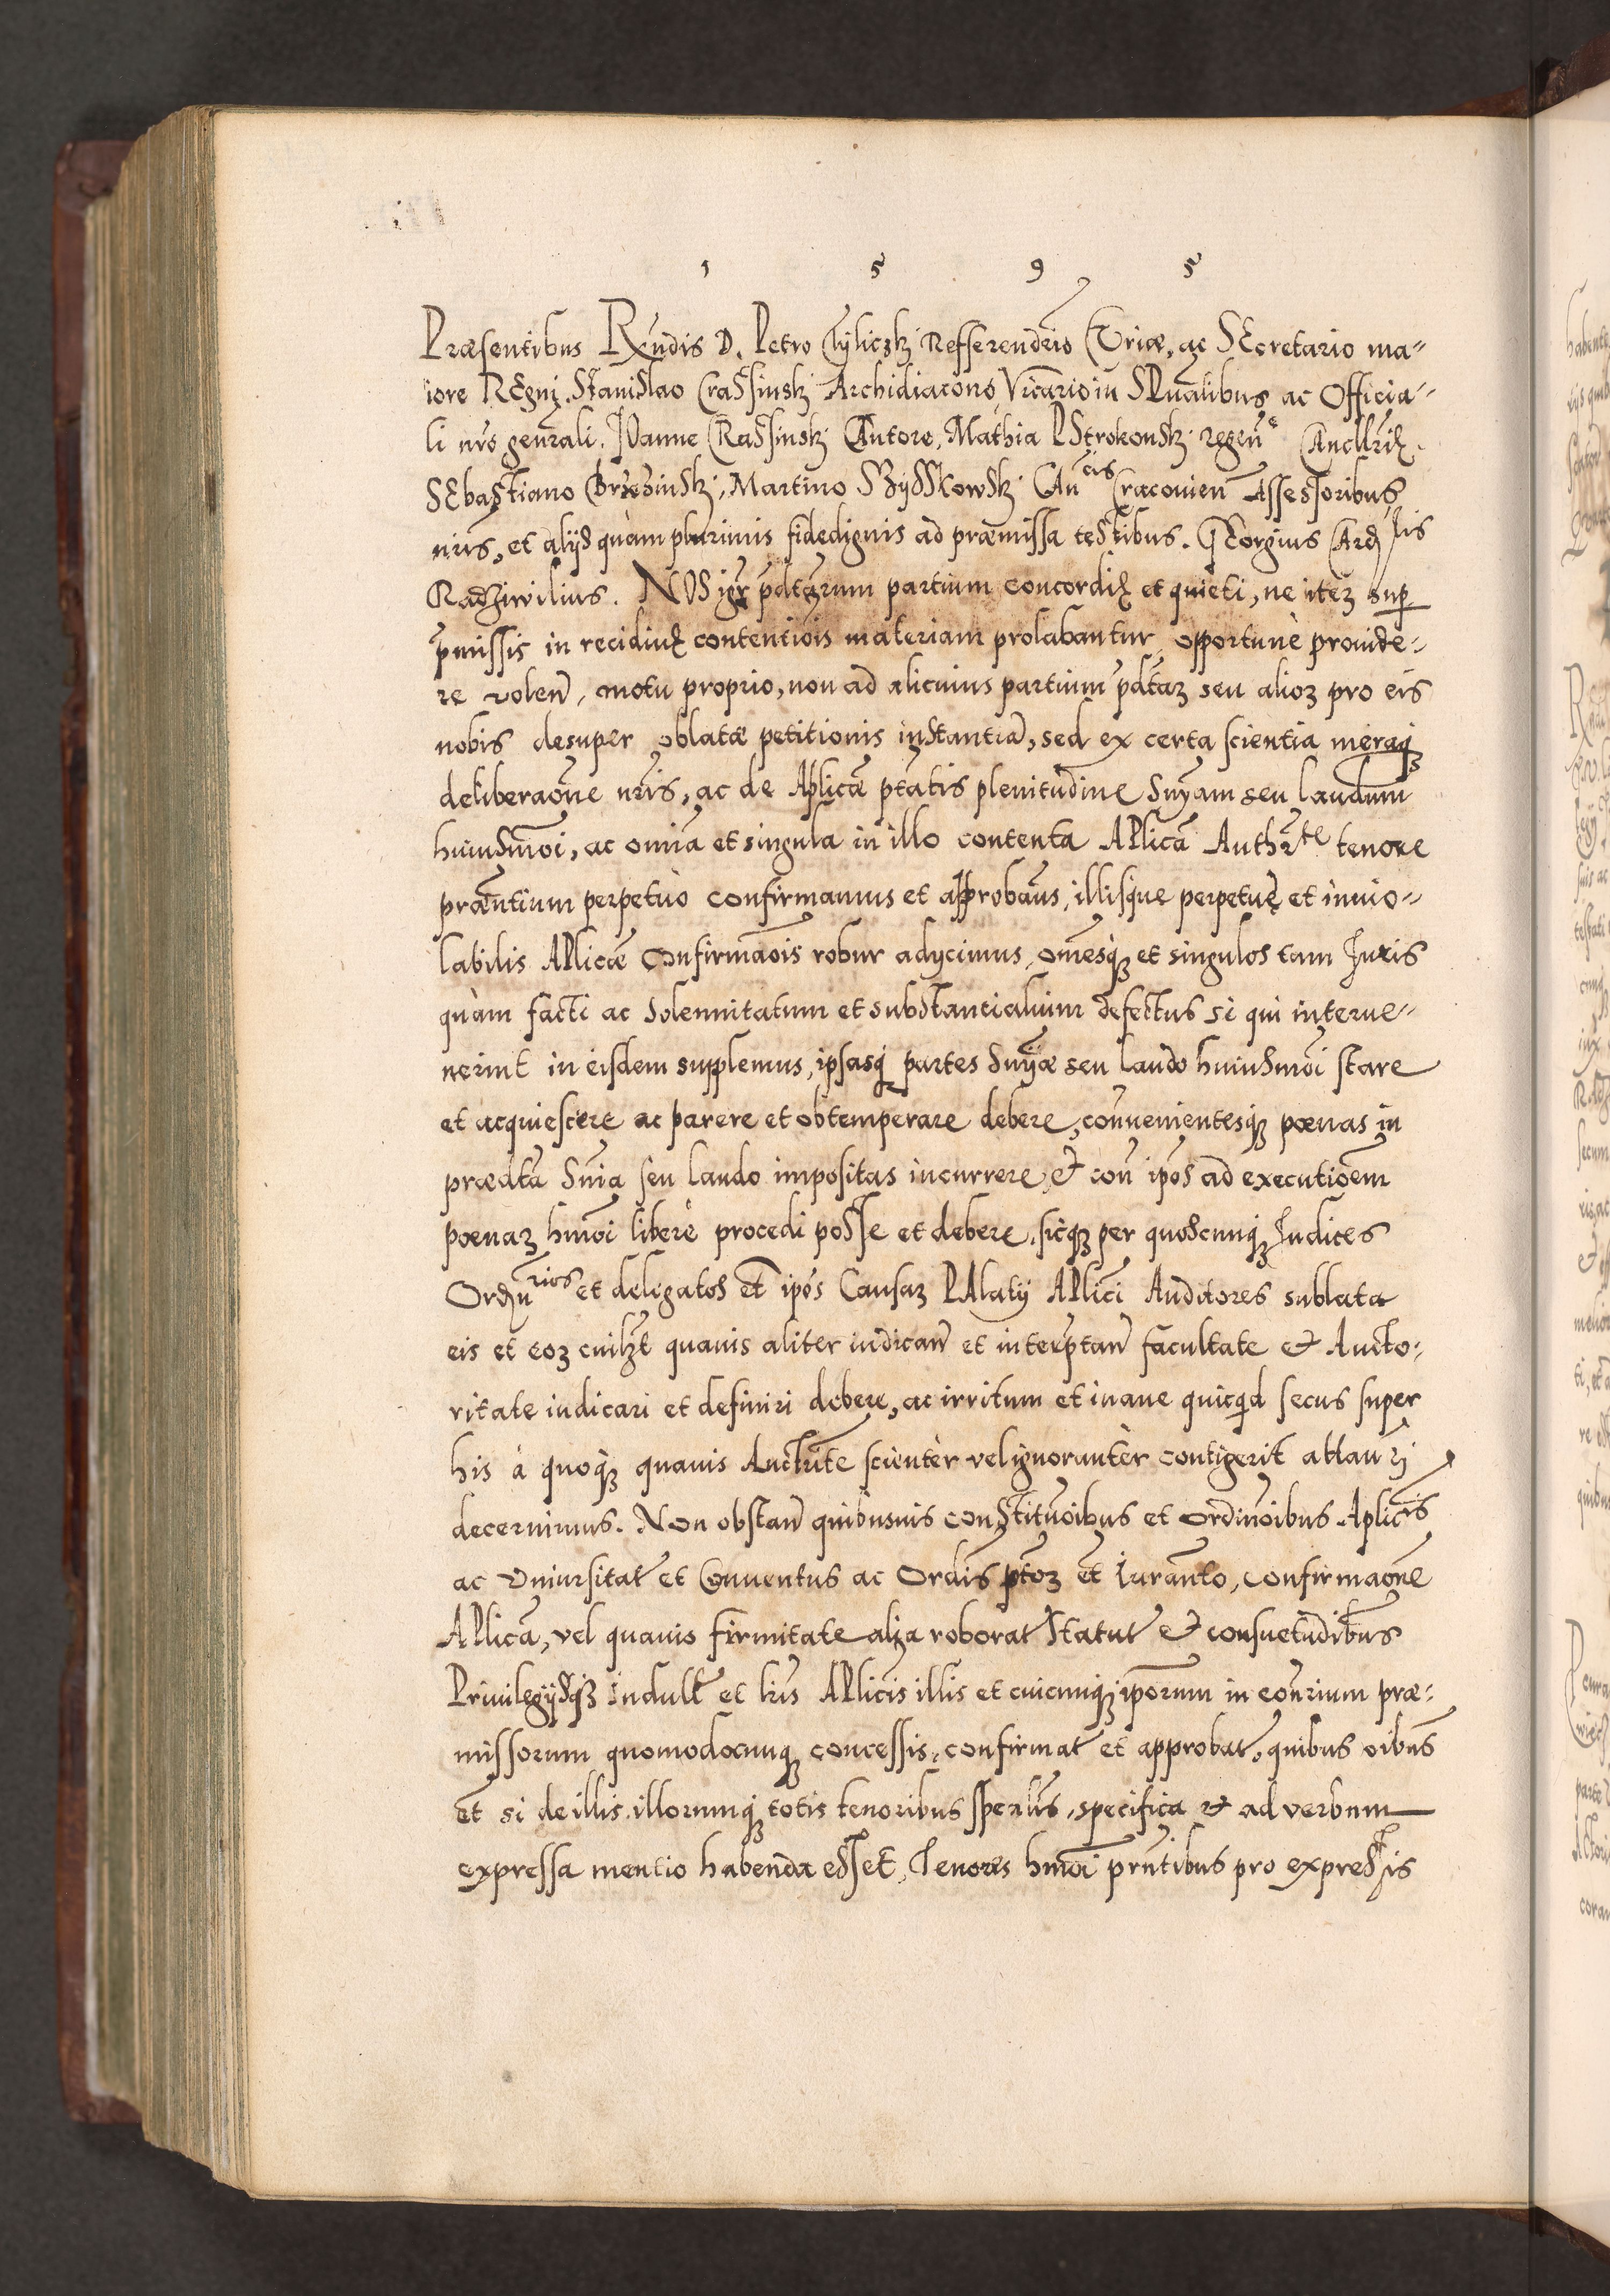 1 5 9 5
Præsentibus Rxndis D. Petro Tÿliczkj Refferendrio Curiæ, ac SEcretario ma-
iore REgnj. Stanislao Crassinskj Archidiacono, Vicario in SPualibus ac Officia-
li nrõ genrali. IOanne CRassinskj CAntore, Mathia PStrokonskj regen CAncllriȩ.
SEbastiano Brzezinskj, Martino SZydSkowskj CAncis Cracovien Assessoribus
nris, et alijs quàm plurimis fidedignis ad præmissa testibus. GEorgius CArdlis
Radziwilius. NOS igr pdtarum partium concordiȩ et quieti, ne iteȝ sup
pmissis in recidiuȩ contentiois materiam prolabantur opportunè prouide-
re volen, motu proprio, non ad alicuius partium pdtaȝ seu alioȝ pro eis
nobis desuper oblatæ petitionis instantia, sed ex certa scientia meraq
deliberaone nris, ac de Aplicæ ptatis plenitudine Snÿam seu laudum
huiusmoi, ac omia et singula in illo contenta APlica Authrte tenore
præntium perpetuò confirmamus et approbaus, illisque perpetuȩ et inuio-
labilis APlicæ Confirmaois robur adycimus, omesqȝ et singulos tam Juris
quàm facti ac solemnitatum et substantialium defectus si qui interue-
nerint in eisdem supplemus, ipsasq partes Snÿæ seu laudo huiusmoi stare
et acquiescere ac parere et obtemperare debere, conuenientesqȝ pœnas in
prædta Snia seu laudo impositas incurrere, & con ipos ad executioem
pœnaȝ hmoi liberè procedi posse et debere, sicqȝ per quoscunqȝ Iudices
Ordnrios et deligatos et ipos Causaȝ PAlatij APlici Auditores sublata
eis et eoȝ cuilzt quauis aliter iudican et interptan facultate & Aucto-
ritate iudicari et definiri debere, ac irritum et inane quicqd secus super
his à quoqȝ quauis Auctrite scientèr vel ignorantèr contigerit attan rj
decernimus. Non obstan quibusuis constitnoibus et ordinoibus Aplicis
ac Vniursitat et Conuentus ac Ordis ptoȝ et Iuranto, confirmaone
APlica, vel quauis firmitate alia roborat Statut & consuetudibus
Priuilegijsqȝ indult et lris APlicis illis et cuicunqȝ iporum in conrium præ-
missorum quomodocunqȝ concessis, confirmat et approbat, quibus oibus
et si de illis illorumqȝ totis tenoribus spealis, specifica & ad verbum
expressa mentio habenda esset, Tenores hmoi prntibus pro expressis